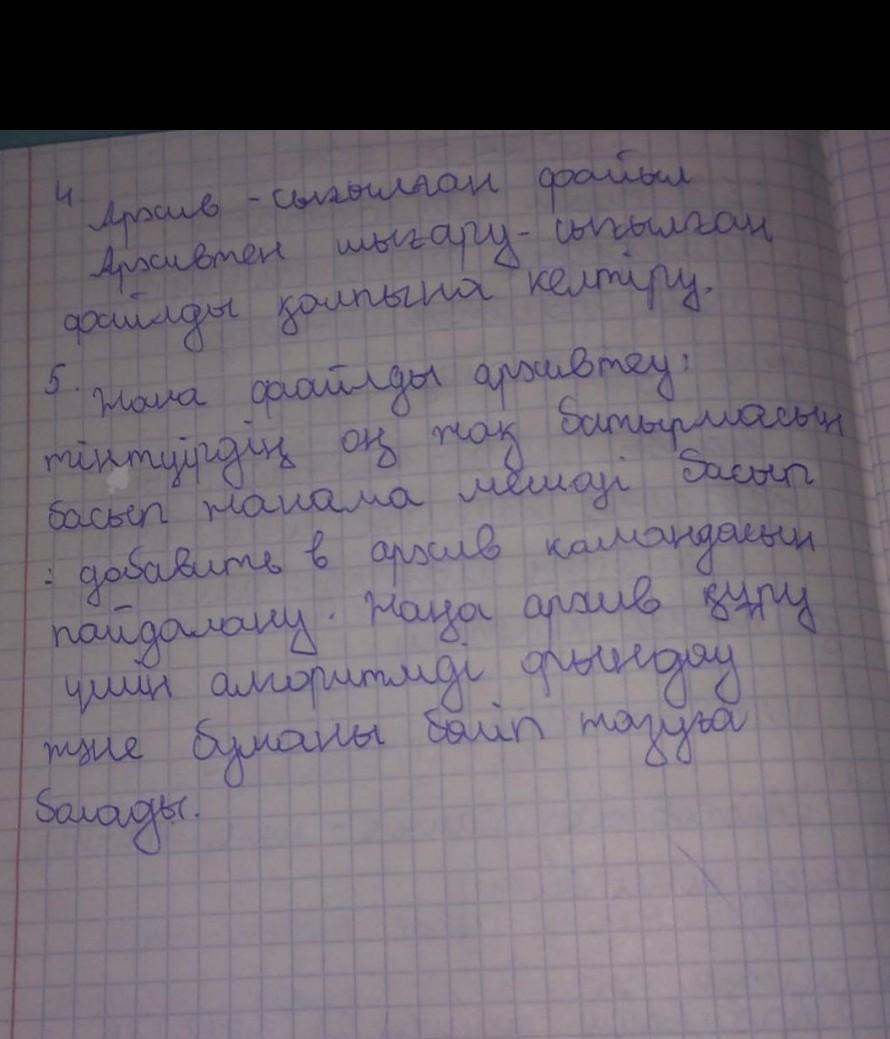 4. Архив - сығылған файыл
Архивтен шығару - сығылған
файлды қалпына келтіру.
5. Жаңа файлды архивтеу:
тінтуірдің оң жақ батырмасын
басып жанама менюді басып
: добавить в архив командасын
пайдалану. Жаңа архив құру
үшін алгоритмді орындау
және буманы бөліп жазуға
болады.